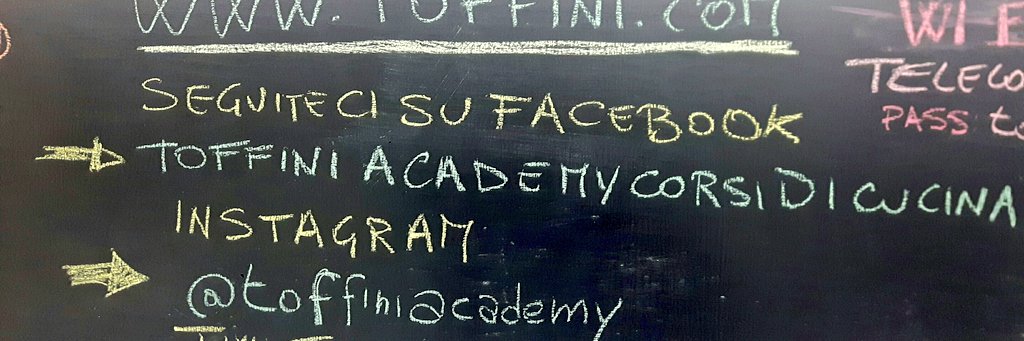 WWW.TOFFINI.COM
SEGUITECI SU FACEBOOK
TOFFINI ACADEMY CORSI DI CUCINA
INSTAGRAM
@toffiniacademy
WI
TELECO
PASS